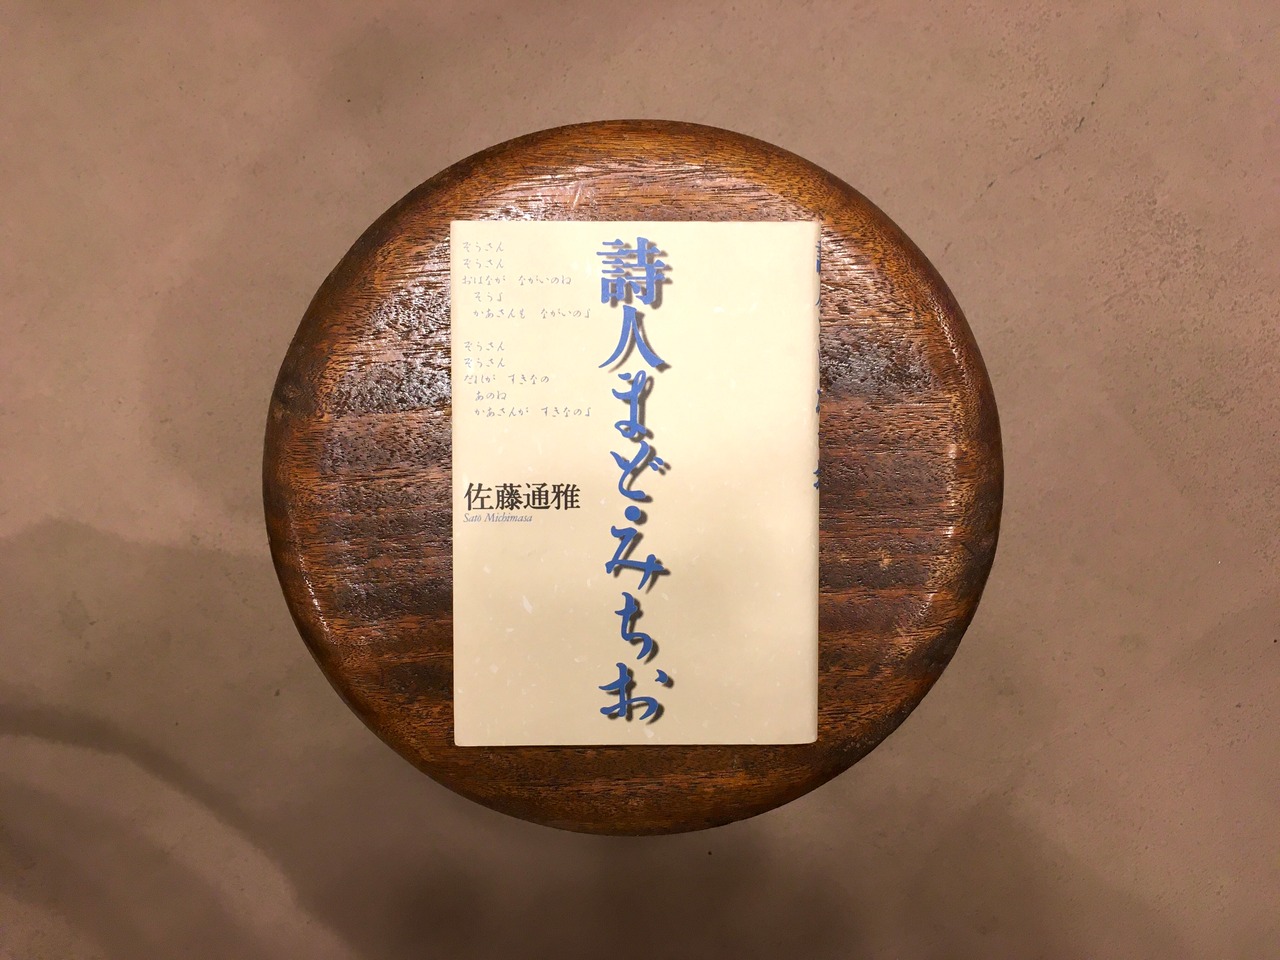 詩人まど・みちお
ぞうさん
ぞうさん
おはなが ながいのね
そうよ
かあさんも ながいのよ
ぞうさん
ぞうさん
だれが すきなの
あのね
かあさんが すきなのよ
佐藤通雅
Satō Michimasa